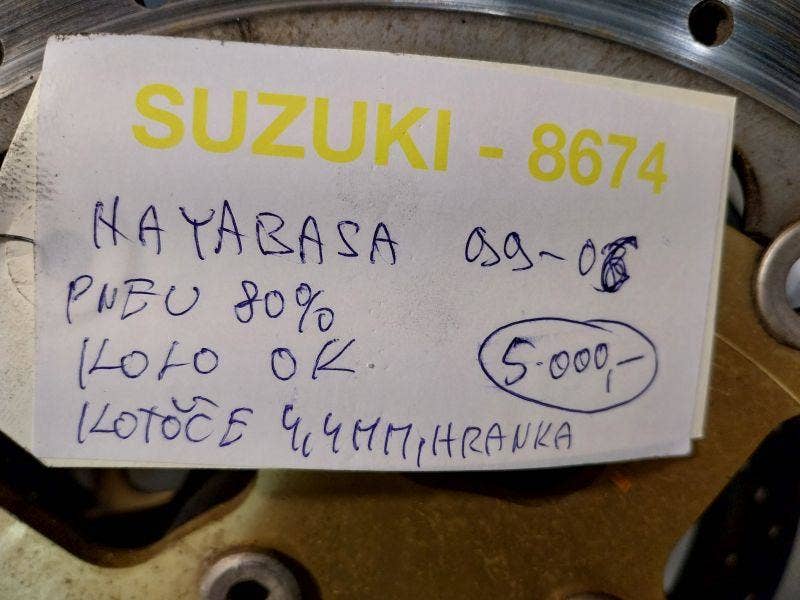 SUZUKI - 8674
HAYABASA 99-06
PNEU 80%
KOLO OK 5.000,-
KOTOČE 4,4MM, HRANKA